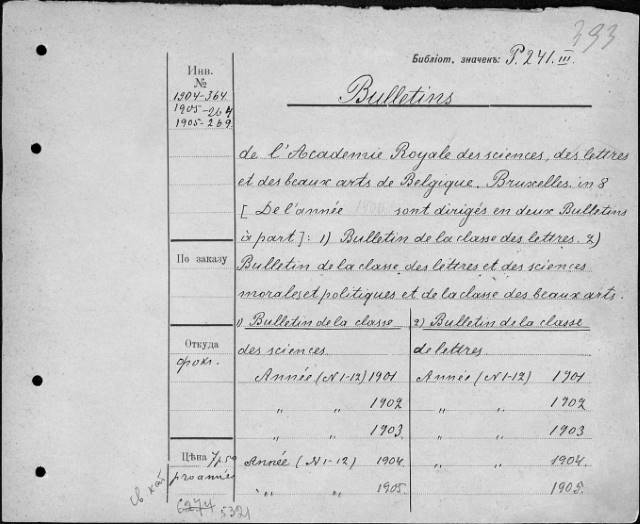 393
Библіот. значекъ: P. 241. III.
Инв.
№
1904-364
1905-264
1905-269
Bulletins
de l'Academie Royale des sciences, des lettres
et des beaux arts de Belgique. Bruxelles. in 8
[ De l'année 1901 sont dirigés en deux Bulletins
à part]: 1) Bulletin de la classe des lettres. 2)
По заказу
Bulletin de la classe des lettres et des sciences
morales et politiques et de la classe des beaux arts.
1) Bulletin de la classe
2) Bulletin de la classe
Откуда
des sciences
de lettres
Année (N 1-12) 1901
Année (N 1-12) 1901
„ „ 1902
„ „ 1902
„ „ 1903
„ „ 1903
Цѣна 7р50
Année (N 1-12) 1904
„ „ 1904
pro année
„ „ 1905.
„ „ 1905.
св кат
6274 5321